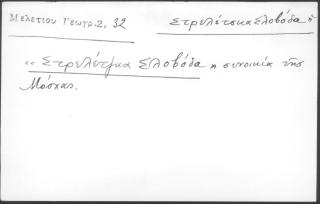 Μελετίου Γεωγρ. 2, 32
Στρελέτσκα Σλοβόδα ἡ
“ Στρελέτζκα Σλοβόδα ἡ συνοικία τῆς
Μόσχας.